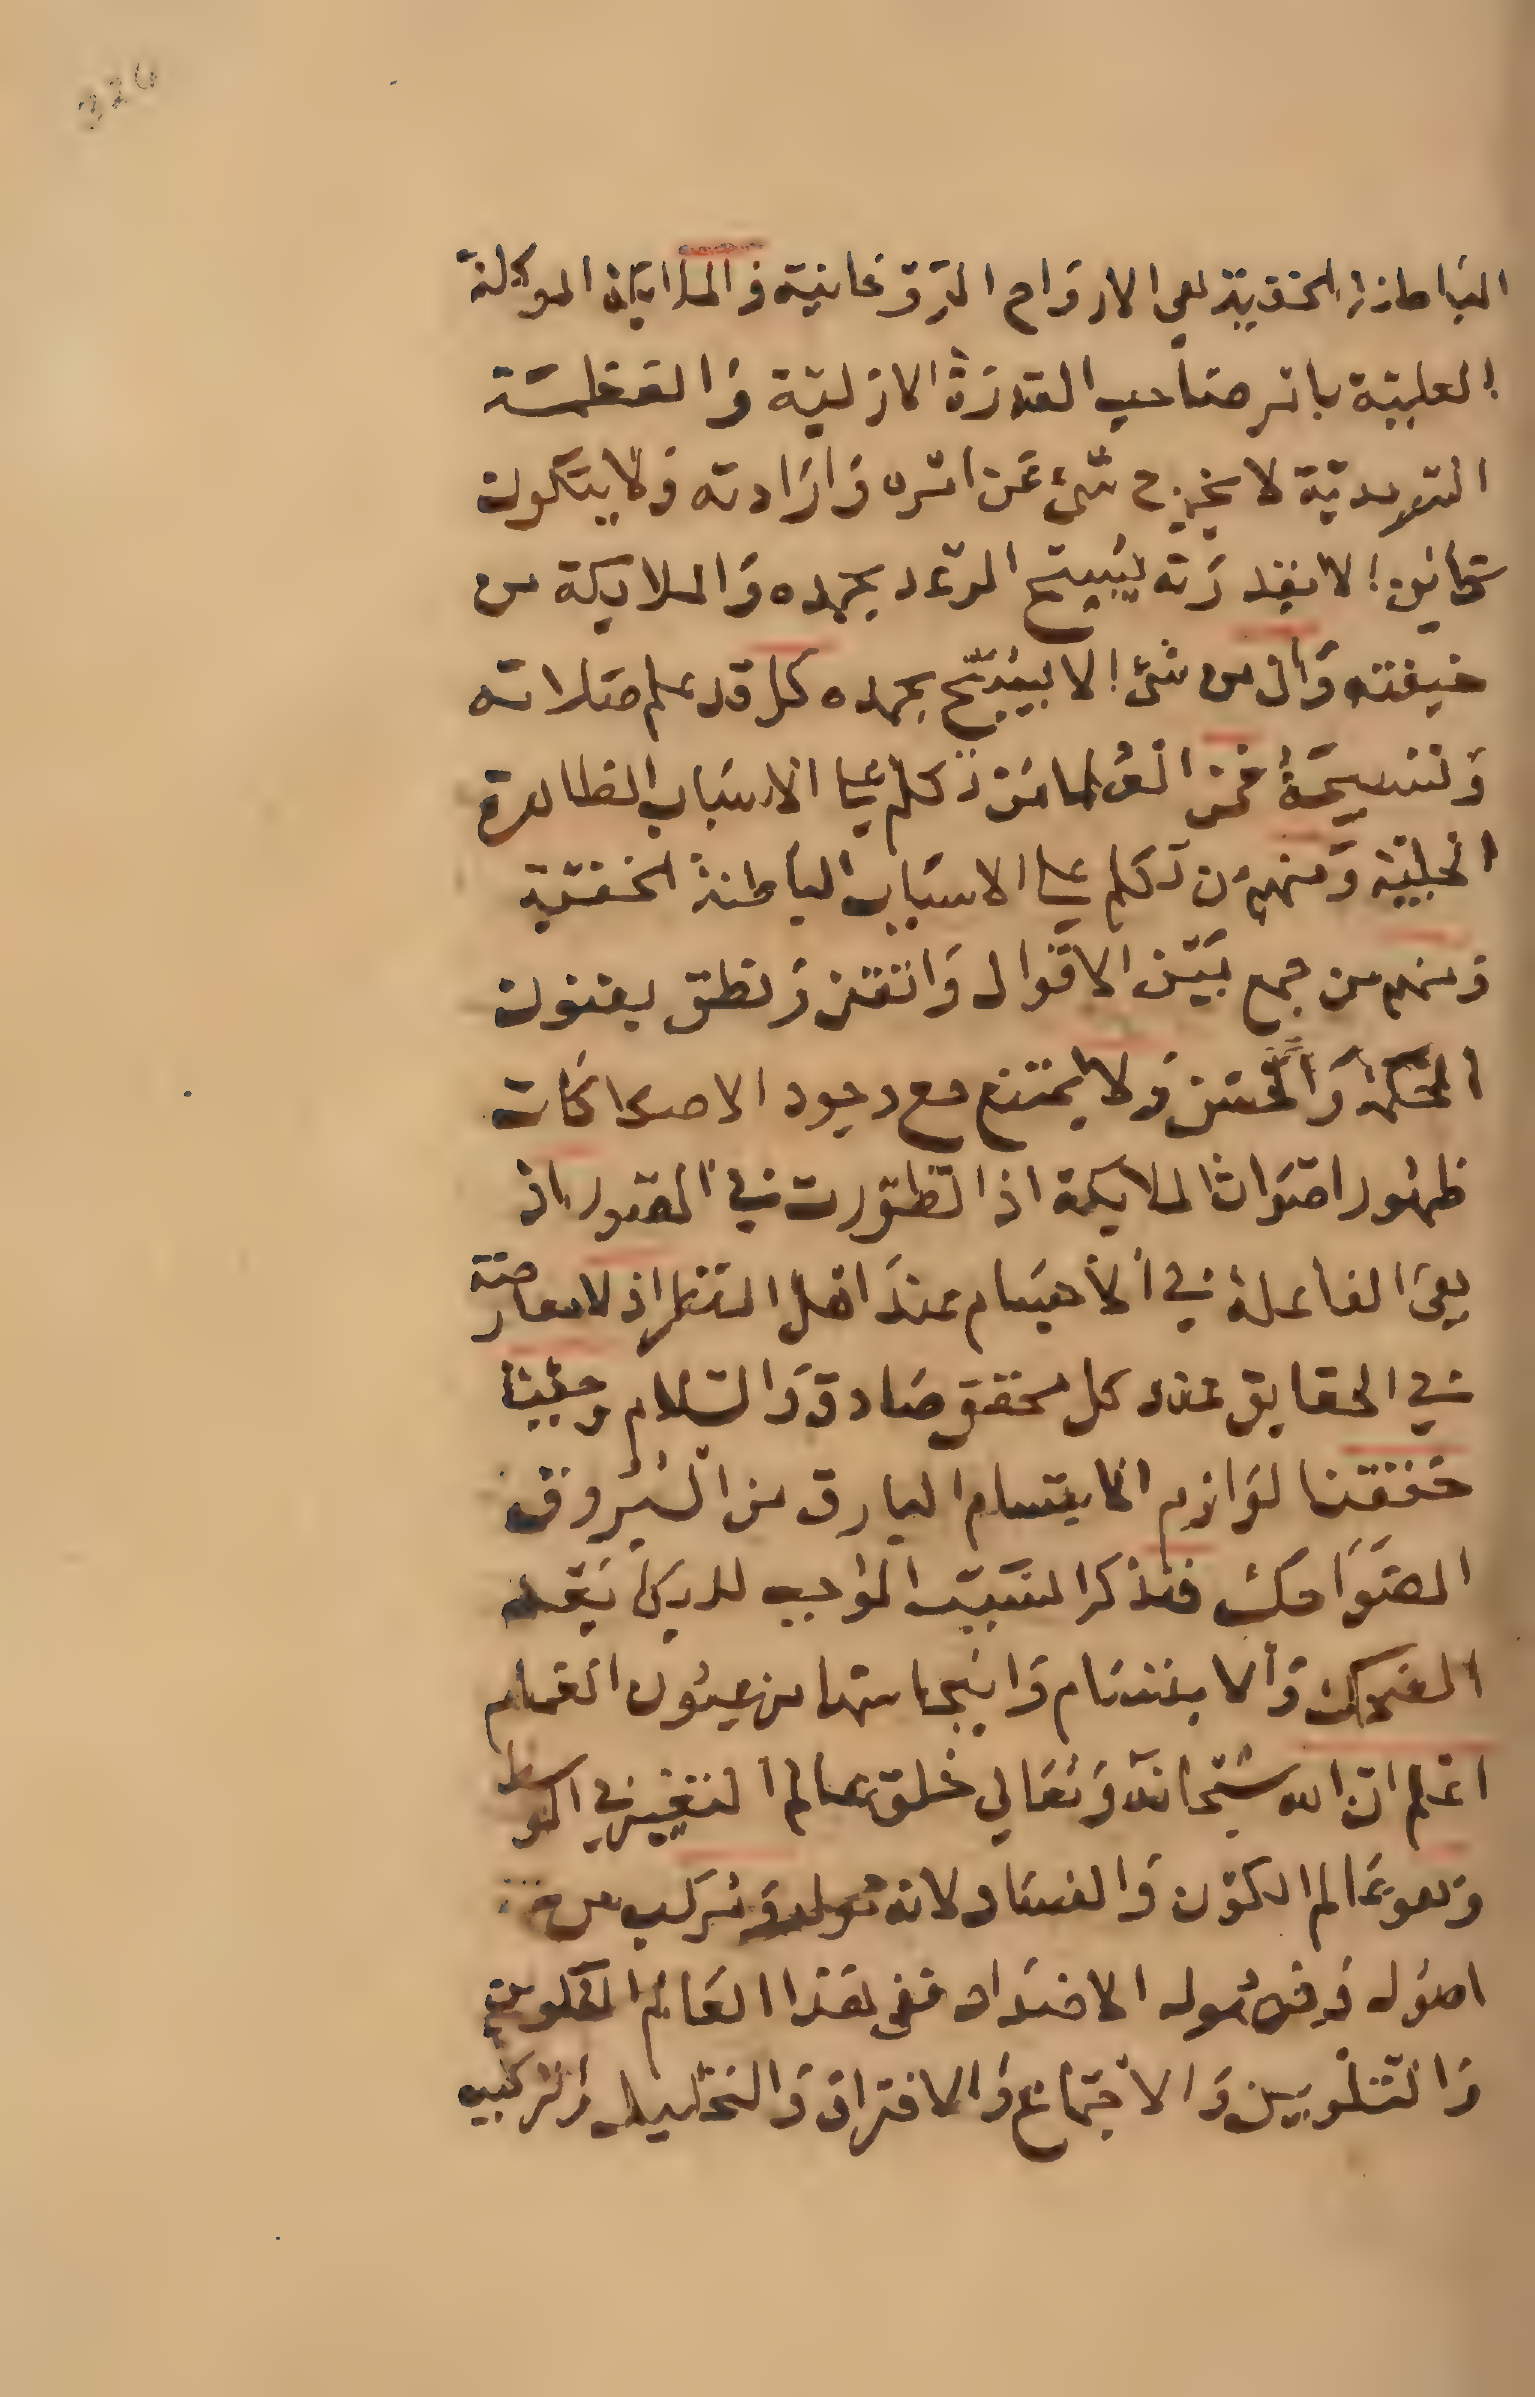 الباطنة الخفية هي الارواح الروحانية والملايكة الموكلة
العلية بامر صاحب القدرة الازلية والعظمة
السرمدية لا يخرج شئ عن امره وارادته ولا يتكون
كاين الا بقدرته يسبح الرعد بحمده والملايكة من
خيفته وان من شئ الا يسبح بحمده كل قد علم صلاته
وتسبيحه فمن العلما من تكلم على الاسباب الظاهرة
الجلية ومنهم من تكلم على الاسباب الباطنة الخفية
ومنهم من جمع بين الاقوال واتقن ونطق بفنون
الحكمة والحسن ولا يمتنع مع وجود الاصطكاكات
ظهور اصوات الملايكة اذا تطورت في الصور اذ
هي الفاعلة في الاجسام عند اهل النظر اذ لا معارضة
في الحقايق عند كل محقق صادق والسلام وحيث
حققنا لوازم الابتسام البارق من البروق
الضواحك فنذكر السبب الموجب لذلك بعد
الضحك والابتسام وانبجاسها من عيون الغمام
اعلم ان الله سبحانه وتعالى خلق عالم التغيير في الوسط
وهو عالم الكون والفساد لانه تولد وتركب من
اصول وفصول الاضداد ففي هذا العالم التكوين
والتلوين والاجتماع والافتراق والتحليل والتركيب